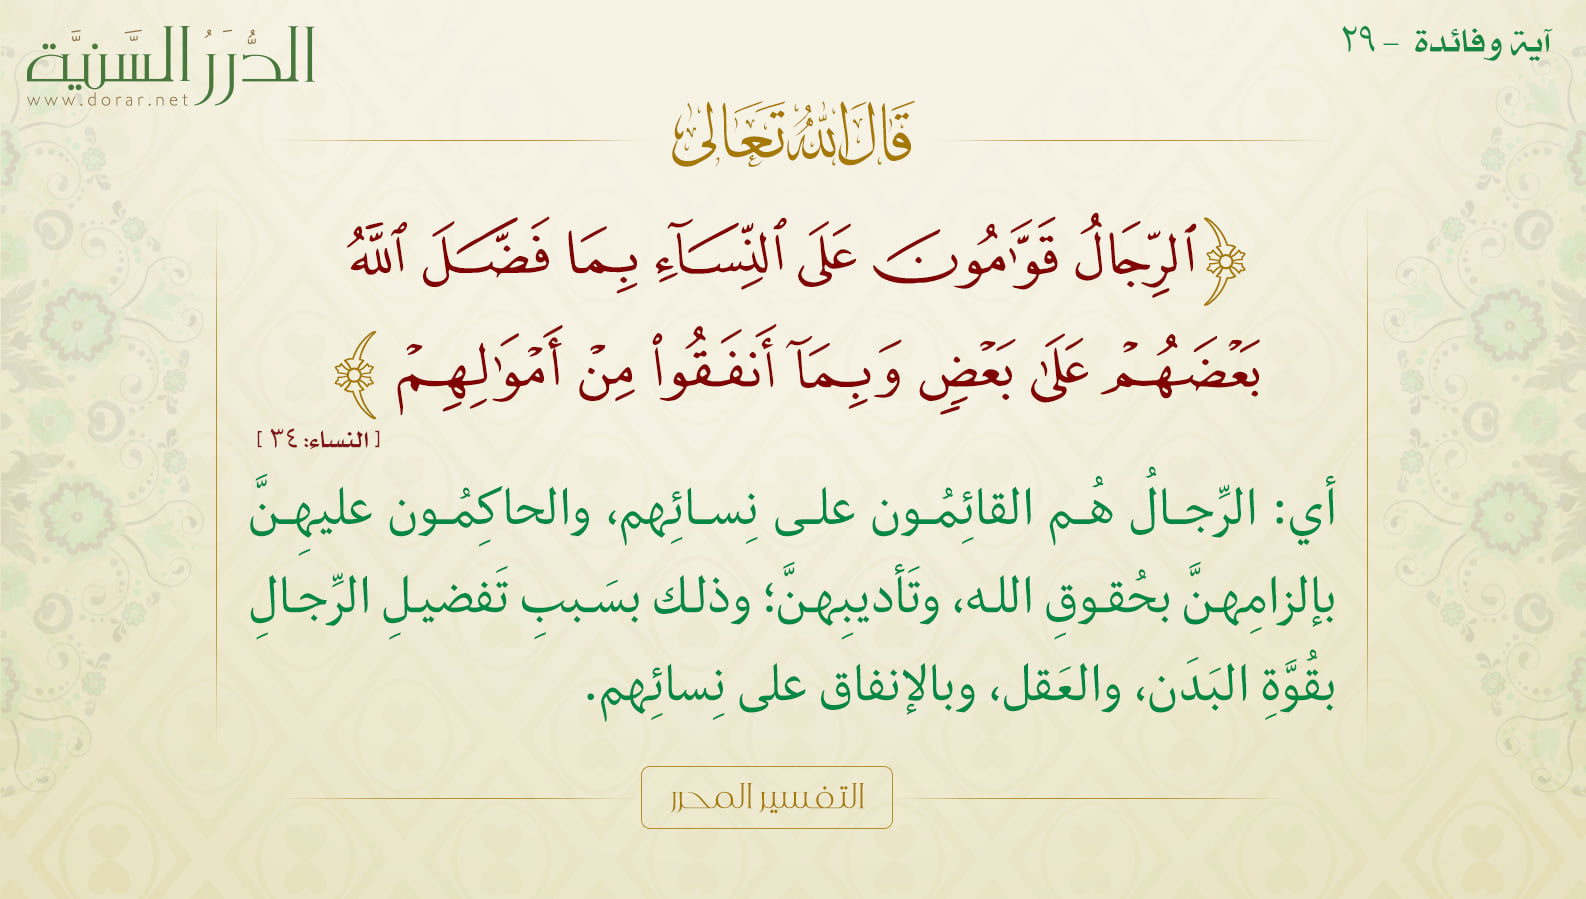 آية وفائدة - ٢٩
الدُّرَرُ السَّنيَّة
www.dorar.net
قَالَ اللهُ تَعَالَى
﴿ٱلرِّجَالُ قَوَّٰمُونَ عَلَى ٱلنِّسَآءِ بِمَا فَضَّلَ ٱللَّهُ
بَعۡضَهُمۡ عَلَىٰ بَعۡضٖ وَبِمَآ أَنفَقُواْ مِنۡ أَمۡوَٰلِهِمۡ﴾
[النساء: ٣٤]
أي: الرِّجـالُ هُـم القائِمُـون علـى نِسـائِهم، والحاكِمُـون عليهِـنَّ
بإلزامِهـنَّ بحُقـوقِ اللـه، وتَأديبِهـنَّ؛ وذلـك بسَـببِ تَفضيـلِ الرِّجـالِ
بقُوَّةِ البَدَن، والعَقل، وبالإنفاق على نِسائِهم.
التفسير المحرر